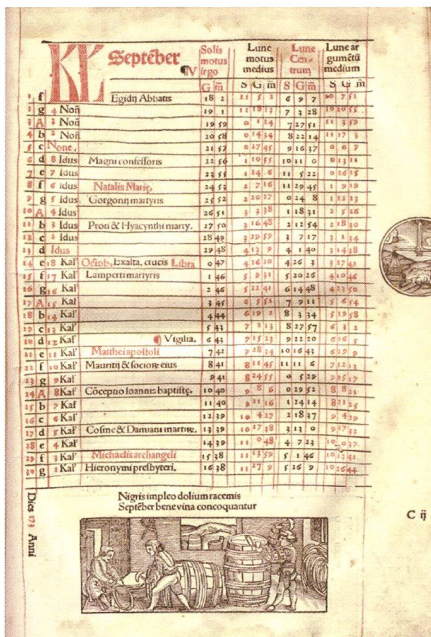 KL Septēber
Solis motus Virgo
Lune motus medius
Lune Cen trum
Lune ar gumētū medium
G m S G m S G m S G m
1 f Egidij Abbatis 18 2 11 5 2 6 9 7
g 4 Noñ 19 1 7 3 28
3 A 3 Noñ 19 59 0 1 24 7 27 51 11 3 59
4 b 2 Noñ 20 58 0 14 34 8 22 14 11 17 3
5 c None. 21 57 0 27 45 9 16 37 0 0 7
6 d 8 Idus Magni confessoris 22 56 1 10 55 10 11 0 0 13 11
7 e 7 Idus 23 55 1 24 6 11 5 22 0 26 15
8 f 6 idus Natalis Marię. 24 53 2 7 16 11 29 45 1 9 19
9 g 5 Idus Gorgonij martyris 25 52 2 20 27 0 24 8 1 22 23
10 A 4 Idus 26 51 3 3 38 1 18 31 2 5 26
11 b 3 Idus Proti & Hyacynthi marty. 27 50 3 16 48 2 12 54 2 18 30
12 c 2 Idus 28 49 3 29 59 3 7 17 3 1 34
13 d Idus 29 48 4 13 9 4 1 40 3 14 38
14 e 18 Kal' Octob. Exalta. crucis Libra 0 47 4 26 20 4 26 3 3 27 41
15 f 17 Kal' Lamperti martyris 1 46 5 9 31 5 20 26 4 10 46
16 g 16 Kal' 2 46 5 22 41 6 14 48 4 23 50
17 A 15 Kal' 3 45 6 5 52 7 9 11 5 6 54
18 b 14 Kal' 4 44 6 19 2 8 3 34 5 19 58
19 c 13 Kal' 5 43 7 2 13 8 27 57 6 3 2
20 d 12 Kal' Vigilia. 6 43 7 15 23 9 22 20 6 16 6
21 e 11 Kal' Matthei apostoli 7 42 7 28 34 10 16 43 6 29 9
22 f 10 Kal' Mauritij & sociorū eius 8 41 8 11 45 11 11 6 7 12 13
23 g 9 Kal' 9 41 8 24 55 0 5 29 7 25 17
24 A 8 Kal' Cōcepno Ioannis baptistę. 10 40 9 8 6 0 29 52 8 8 21
25 b 7 Kal' 11 40 9 21 16 1 24 14 8 21 25
26 c 6 Kal' 12 39 10 4 27 2 18 37 9 4 29
27 d 5 Kal' Cosme & Damiani martirū. 13 39 10 17 38 3 13 0 9 17 33
28 e 4 Kal' 14 39 11 0 48 4 7 23 10 0 37
29 f 3 Kal' Michaelis archangeli 15 38 11 13 59 5 1 46 10 13 41
30 g 2 Kal' Hieronymi presbyteri. 16 38 11 27 9 5 26 9 10 26 44
Dies 273 Anni
Nigris impleo dolium racemis
Septēber bene vina concoquantur
C ij